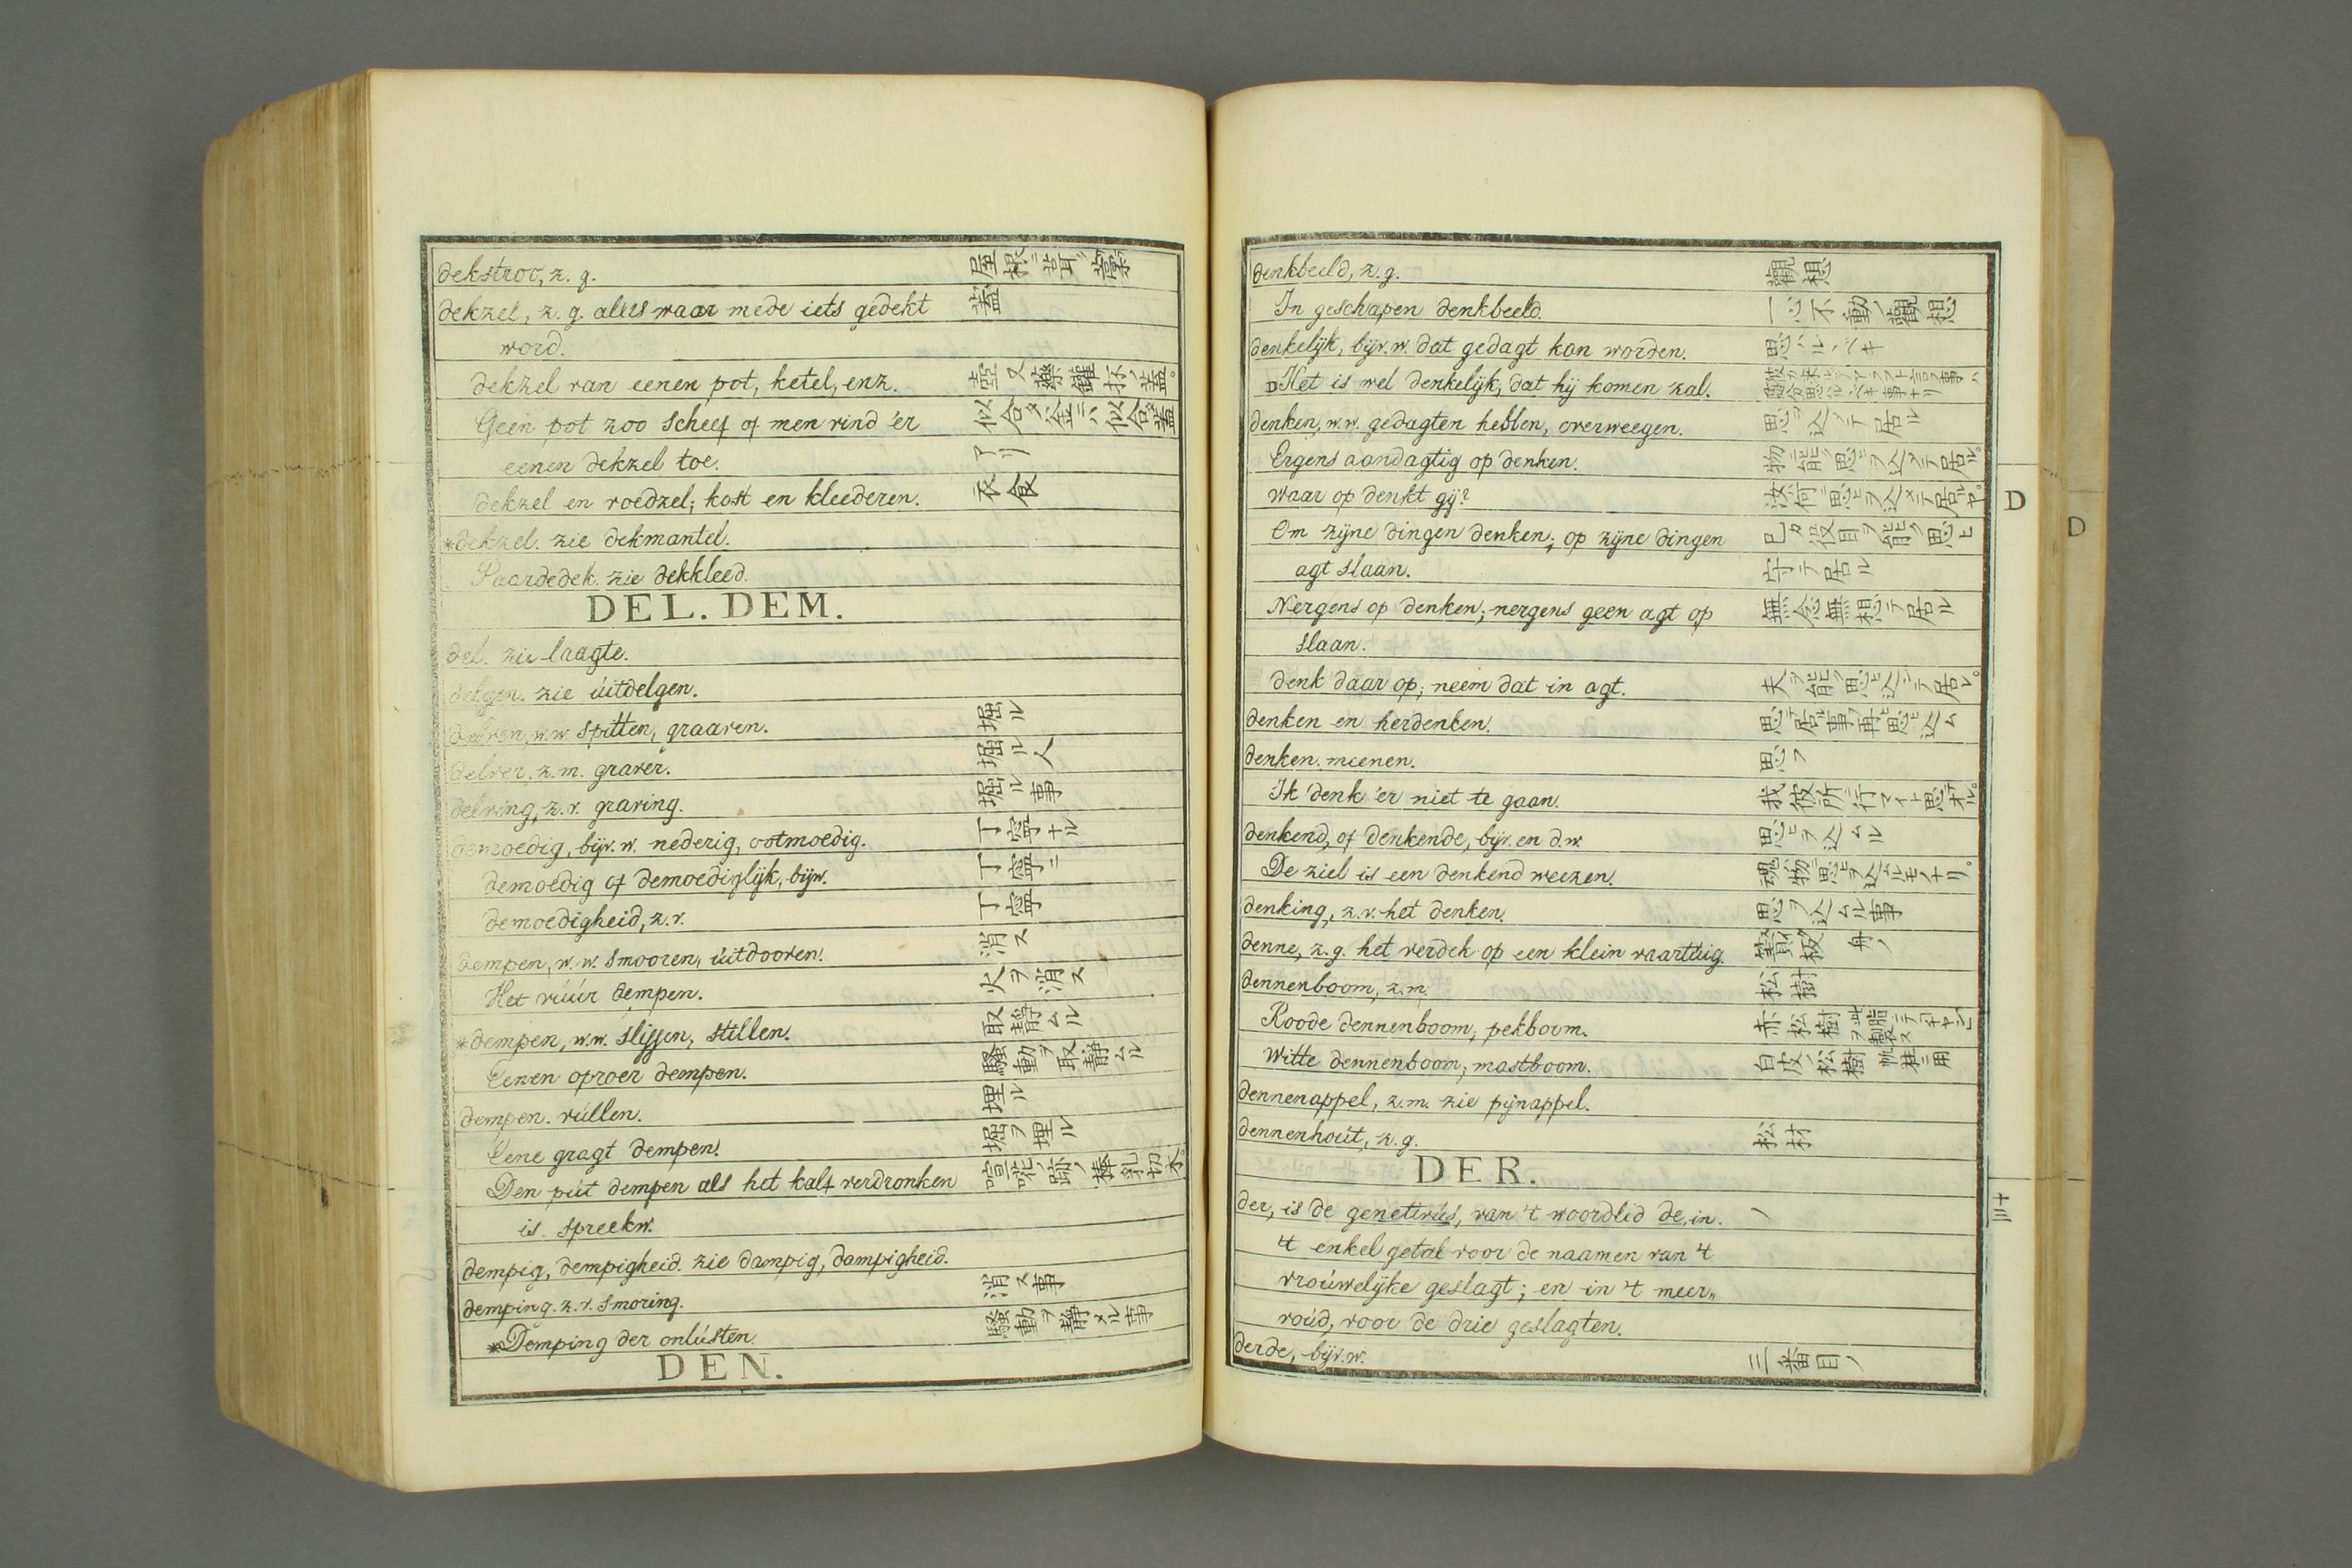 dekstroo, z. g. 屋根ニ葺ク藁
dekzel, z. g. alles waar mede iets gedekt 蓋
word.
dekzel van eenen pot, ketel, enz. 壺又藥鑵抔ノ蓋。
Geen pot zoo scheef of men vind 'er 似合タ釜ニハ似合タ蓋
eenen dekzel toe. アリ
dekzel en voedzel; kost en kleederen. 衣食
*dekzel. zie dekmantel.
Paardedek. zie dekkleed.
DEL. DEM.
del. zie laagte.
delgen. zie úitdelgen.
delven, w.w. spitten, graaven. 堀ル
delver, z. m. graver. 堀ル人
delving, z. v. graving. 堀ル事
demoedig, bijv. w. nederig, ootmoedig. 丁寧ナル
demoedig of demoediglijk, bijw. 丁寧ニ
demoedigheid, z. v. 丁寧
dempen, w. w. smooren, úitdooven. 消ス
Het vúúr dempen. 火ヲ消ス
*dempen, w.w. slissen, stillen. 取靜ムル
Eenen oproer dempen. 騒動ヲ取靜ムル
dempen. vúllen. 埋ル
Eene gragt dempen. 堀ヲ埋ル
Den pút dempen als het kalf verdronken 喧嘩ノ跡ノ棒乳切木。
is. spreekw.
dempig, dempigheid. zie dampig, dampigheid.
demping. z. v. smoring. 消ス事
*Demping der onlústen. 騒動ヲ靜メル事
DEN.
denkbeeld, z. g. 觀想
In geschapen denkbeeld. 一心不動ノ觀想
denkelijk, bijv. w. dat gedagt kan worden. 思ハルベキ
Het is wel denkelijk, dat hij komen zal.
denken, w.w. gedagten hebben, overweegen. 思ヲ込テ居ル
Ergens aandagtig op denken. 物ニ能ク思ヒヲ込メテ居ル。
Waar op denkt gij? 汝何ニ思ヒヲ込メテ居ルヤ。
Om zijne dingen denken; op zijne dingen 己カ役目ヲ能ク思ヒ
agt slaan. 守テ居ル
Nergens op denken; nergens geen agt op 無念無想テ居ル
slaan.
denk daar op; neem dat in agt. 夫ヲ能ク思ヒ込ンテ居レ。
denken en herdenken. 思テ居ル事ヲ再ヒ思ヒ込ム
denken. meenen. 思フ
Ik denk 'er niet te gaan. 我彼所ニ行マイト思テオル。
denkend, of denkende, bijv. en d.w. 思ヒヲ込ムル
De ziel is een denkend weezen. 魂ハ物ニ思ヒヲ込ムルモノナリ。
denking, z. v. het denken. 思ヲ込ムル事
denne, z. g. het verdek op een klein vaartúig. 簀板 舟ノ
dennenboom, z.m. 松樹
Roode dennenboom, pekboom. 赤松樹
Witte dennenboom, mastboom. 白皮ノ松樹 帆柱ニ用
dennenappel, z. m. zie pijnappel.
dennenhoút, z. g. 松材
DER.
der, is de genetivús, van 't woordlid de, in. ノ
't enkel getal voor de naamen van 't
vroúwelijke geslagt; en in 't meer„
voúd, voor de drie geslagten.
derde, bijv. w. 三番目ノ
D
D